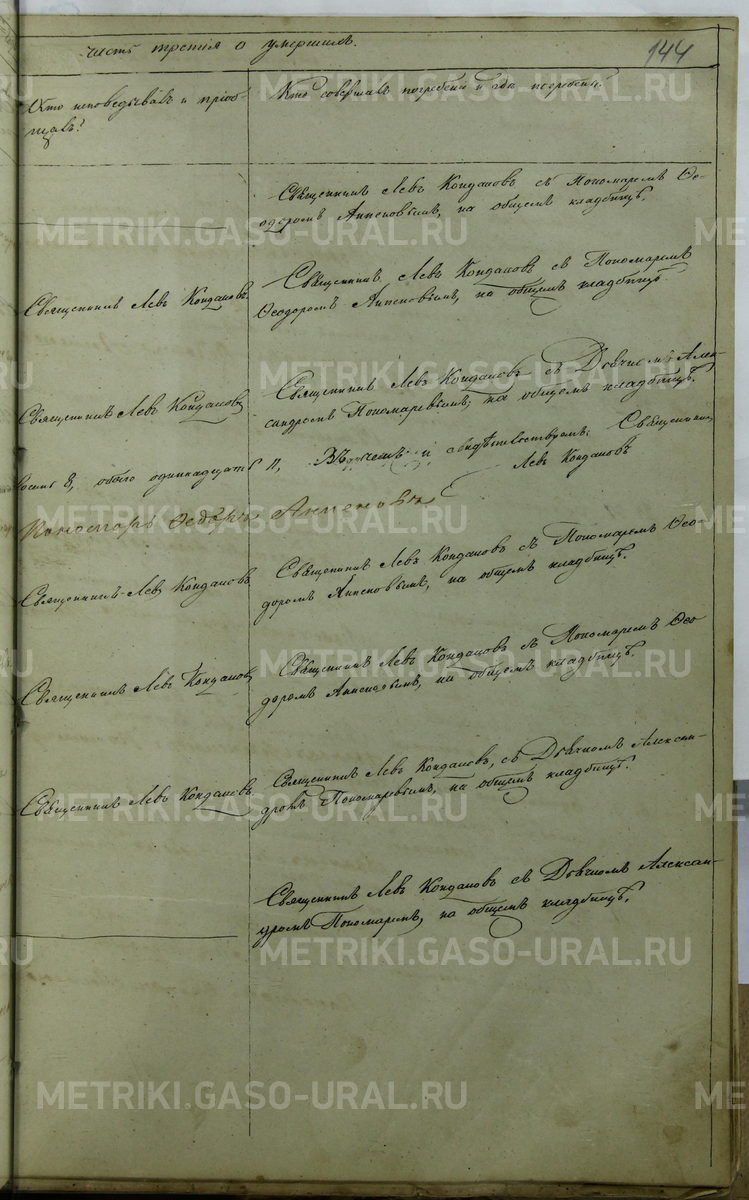 часть третия о умершихъ.
144
Кто исповедывалъ и пріоб-
щалъ?
Кто совершалъ погребеніе и гдѣ погребены?
Священникъ Левъ Кондаковъ съ Пономаремъ Ѳе-
одоромъ Анненовымъ, на общемъ кладбищѣ.
Священникъ Левъ Кондаковъ
Священникъ Левъ Кондаковъ съ Пономаремъ
Ѳеодоромъ Анненовымъ, на общемъ кладбищѣ
Священникъ Левъ Кондаковъ
Священникъ Левъ Кондаковъ съ Дьячкомъ Алек-
сандромъ Пономаревымъ, на общемъ кладбищѣ.
восемь 8, обоего одинадцать 11, свидѣтельствуемъ: Священникъ
Левъ Кондаковъ
Пономарь Ѳедоръ Анненовъ
Священникъ Левъ Кондаковъ
Священникъ Левъ Кондаковъ съ Пономаремъ Ѳео-
доромъ Анненовымъ, на общемъ кладбищѣ.
Священникъ Левъ Кондаковъ
Священникъ Левъ Кондаковъ съ Пономаремъ Ѳео
доромъ Анненовымъ, на общемъ кладбищѣ.
Священникъ Левъ Кондаковъ
Священникъ Левъ Кондаковъ, съ Дьячкомъ Алексан-
дромъ Пономаревымъ, на общемъ кладбищѣ.
Священникъ Левъ Кондаковъ съ Дьячкомъ Алексан-
дромъ Пономаремъ, на общемъ кладбищѣ.
METRIKI.GASO-URAL.RU